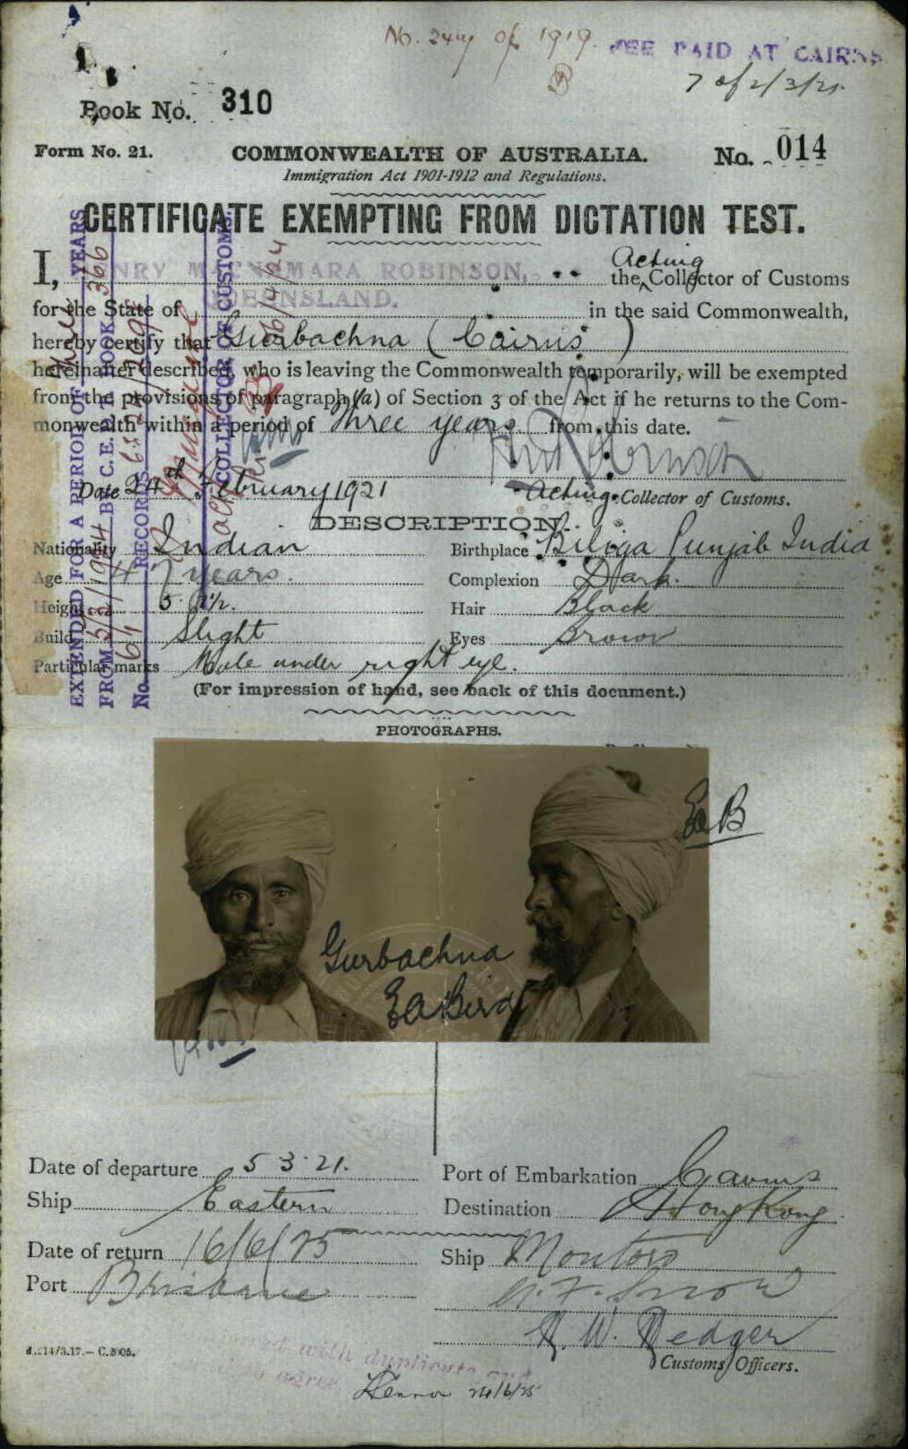 of 1919.
FEE PAID AT CAIRNS
7 of 2/3/21
Book No. 310
Form No. 21.
COMMONWEALTH OF AUSTRALIA.
No. 014
Immigration Act 1901-1912 and Regulations.
CERTIFICATE EXEMPTING FROM DICTATION TEST.
I, HENRY McNAMARA ROBINSON, the Acting Collector of Customs
for the State of QUEENSLAND. in the said Commonwealth,
hereby certify that Gurbachna (Cairns)
hereinafter described, who is leaving the Commonwealth temporarily, will be exempted
from the provisions of paragraph (a) of Section 3 of the Act if he returns to the Com-
monwealth within a period of Three years from this date.
Date 24th February 1921
Acting Collector of Customs.
DESCRIPTION.
Nationality Indian
Birthplace Punjab India
Age 47 years.
Complexion Dark.
Height 5' 8½.
Hair Black
Build Slight
Eyes Brown
Particular marks Mole under right eye.
(For impression of hand, see back of this document.)
PHOTOGRAPHS.
EAB
Gurbachna
EA Bird
Date of departure 5 3 21.
Port of Embarkation Cairns
Ship Eastern
Destination Hong Kong
Date of return 16/6/25
Ship Montoro
Port Brisbane
W. F. Snow
W. Dedger
Customs Officers.
with duplicate and
24/6/25
EXTENDED FOR A PERIOD OF three YEARS
FROM B C.E.D.T. BOOK 366
No. RECORDS
COLLECTOR OF CUSTOMS.